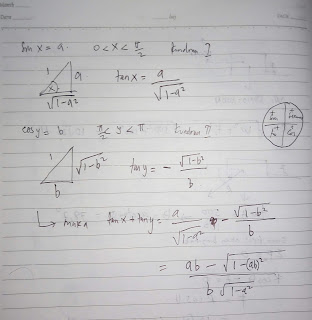 sin x = a. 0 < x < π/2 kuadran I
1 a x √1-a²
tan x = a/√1-a²
cos y = b π/2 < y < π kuadran II
1 √1-b² b
tan y = - √1-b²/b
↳ maka tan x + tan y = a/√1-a² - √1-b²/b
= ab - √1-(ab)²/b √1-a²